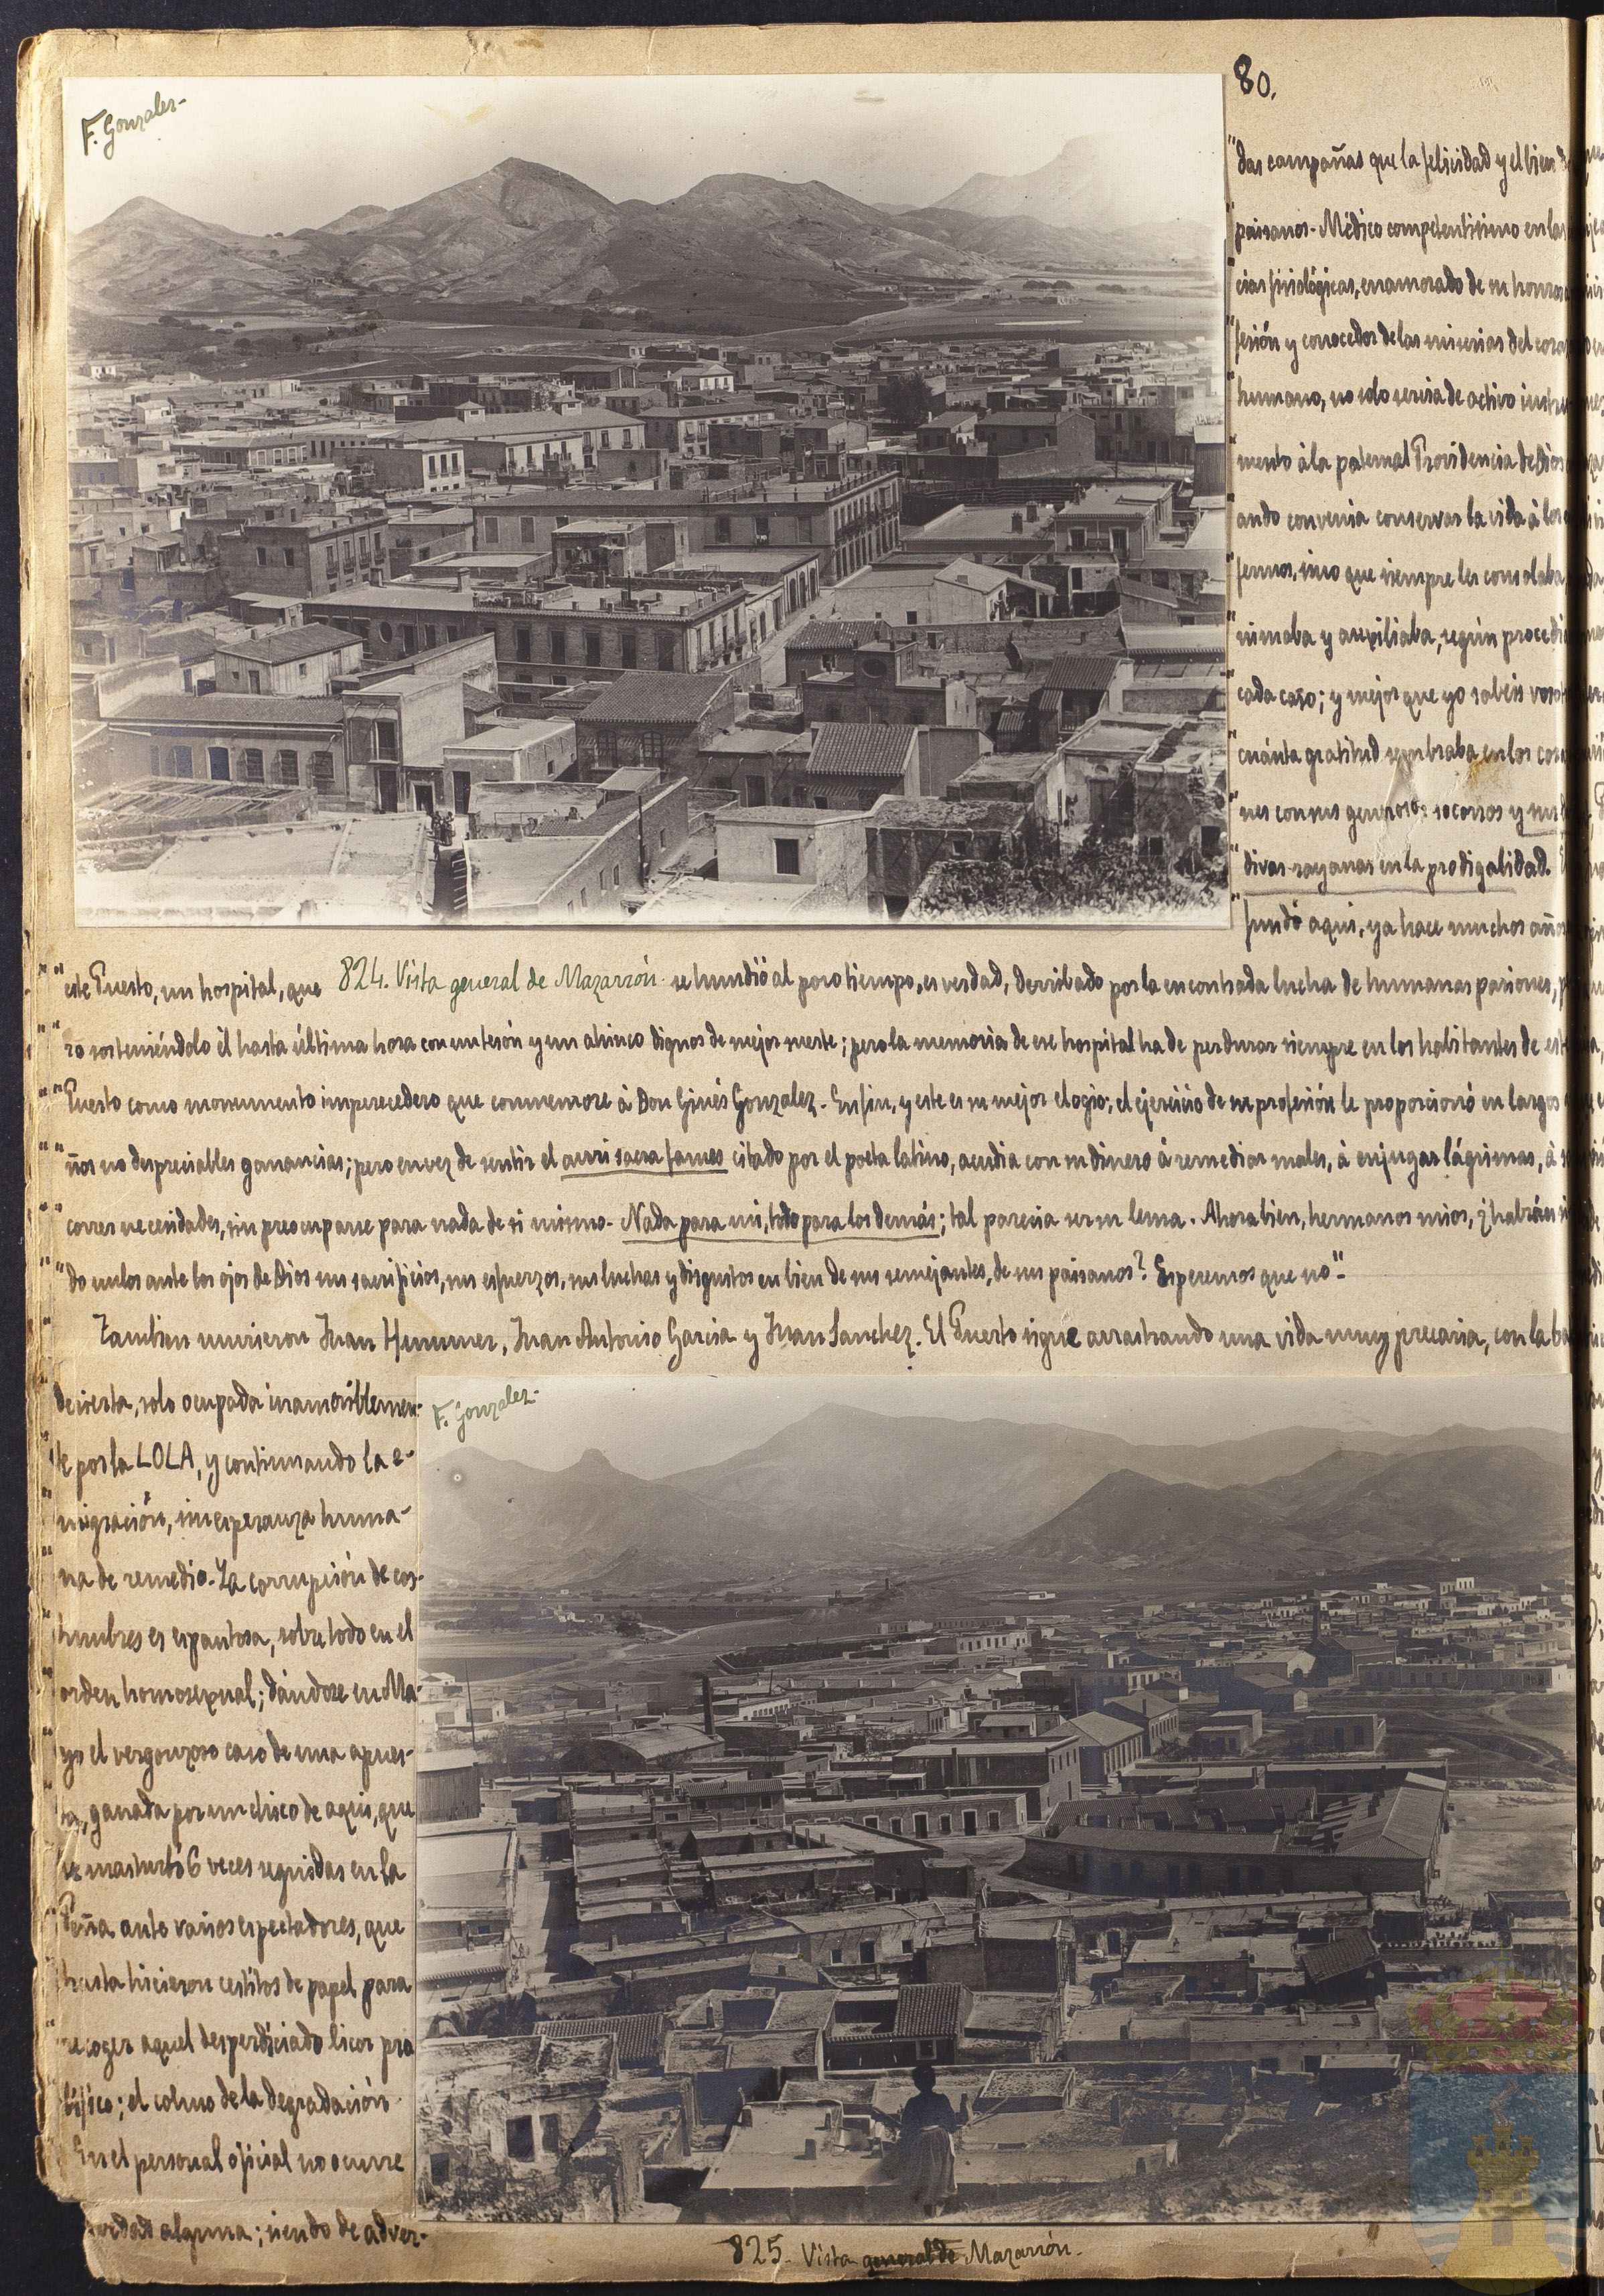 80.
F. Gonzalez-
"das campañas que la felicidad y el bien d
"paisanos- Médico competentisimo en las
"cias fisiológicas, enamorado de su honros
"fesión y conocedor de las miserias del cora
"humano, no solo servia de activo instru
"mento á la paternal Providencia de Dios
"ando convenia conservar la vida á los
"fermos, sino que siempre les consolaba
"nimaba y auxiliaba, según procedi
"cada caso; y mejor que yo sabéis voso
"cuánta gratitud sembraba en los cora
"nes con sus generosos socorros y sus
"divas rayanas en la prodigalidad.
"fundó aqui, ya hace muchos años
"este Puerto, un hospital, que 824. Vista general de Mazarrón. se hundió al poco tiempo, es verdad, derribado por la encontrada lucha de humanas pasiones,
"ro sosteniéndolo él hasta última hora con un tesón y un ahinco dignos de mejor suerte; pero la memoria de ese hospital ha de perdurar siempre en los habitantes de est
"Puerto como monumento imperecedero que conmemore á Don Ginés Gonzalez- En fin, y este es su mejor elogio; el ejercicio de su profesión le proporcionó en largos
"ños no despreciables ganancias; pero en vez de sentir el auri sacra fames citado por el poeta latino, acudia con su dinero á remediar males, á enjugar lágrimas, á
"correr necesidades, sin preocuparse para nada de si mismo- Nada para mi, todo para los demás; tal parecia ser su lema. Ahora bien, hermanos mios, ¿habrán si
"do nulos ante los ojos de Dios sus sacrificios, sus esfuerzos, sus luchas y disgustos en bien de sus semejantes, de sus paisanos? Esperemos que no"-
Tambien murieron Juan Hummer, Juan Antonio Garcia y Juan Sanchez. El Puerto sigue arrastrando una vida muy precaria, con la ba
desierta, solo ocupada inamoviblemen-
te por la LOLA, y continuando la e-
migración, sin esperanza huma-
na de remedio- La corrupción de cos-
tumbres es espantosa, sobre todo en el
orden homosexual; dándose en Ma-
yo el vergonzoso caso de una apues-
ta, ganada por un chico de aqui, que
se masturbó 6 veces seguidas en la
Peña ante varios espectadores, que
hasta hicieron cestitos de papel para
recoger aquel desperdiciado licor pro
lífico; el colmo de la degradación-
En el personal oficial no ocurre
novedad alguna; siendo de adver-
F. Gonzalez-
825- Vista general de Mazarrón-